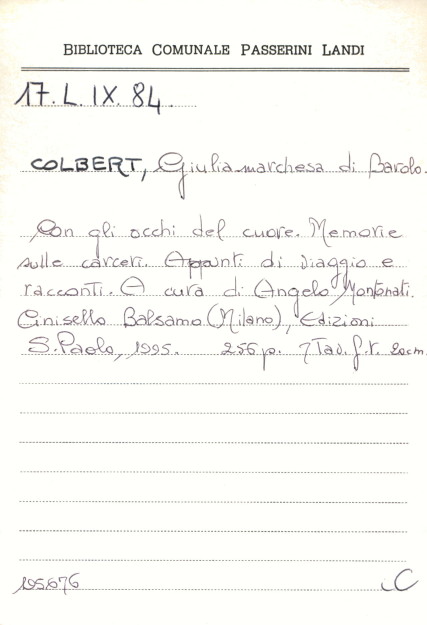 BIBLIOTECA COMUNALE PASSERINI LANDI
17. L. IX. 84
COLBERT, Giulia marchesa di Barolo.
Con gli occhi del cuore. Memorie
sulle carceri. Appunti di viaggio e
racconti. A cura di Angelo Montonati.
Cinisello Balsamo (Milano), Edizioni
S. Paolo, 1995. 256 p. 7 Tav. f.t. 20cm.
195676